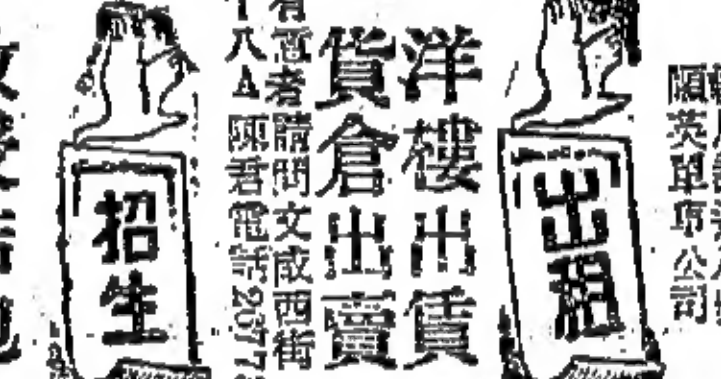 英單車公司
出租
洋樓出賃
貨倉出賣
有意者請問文咸西街
八A陳君電話2077
招生